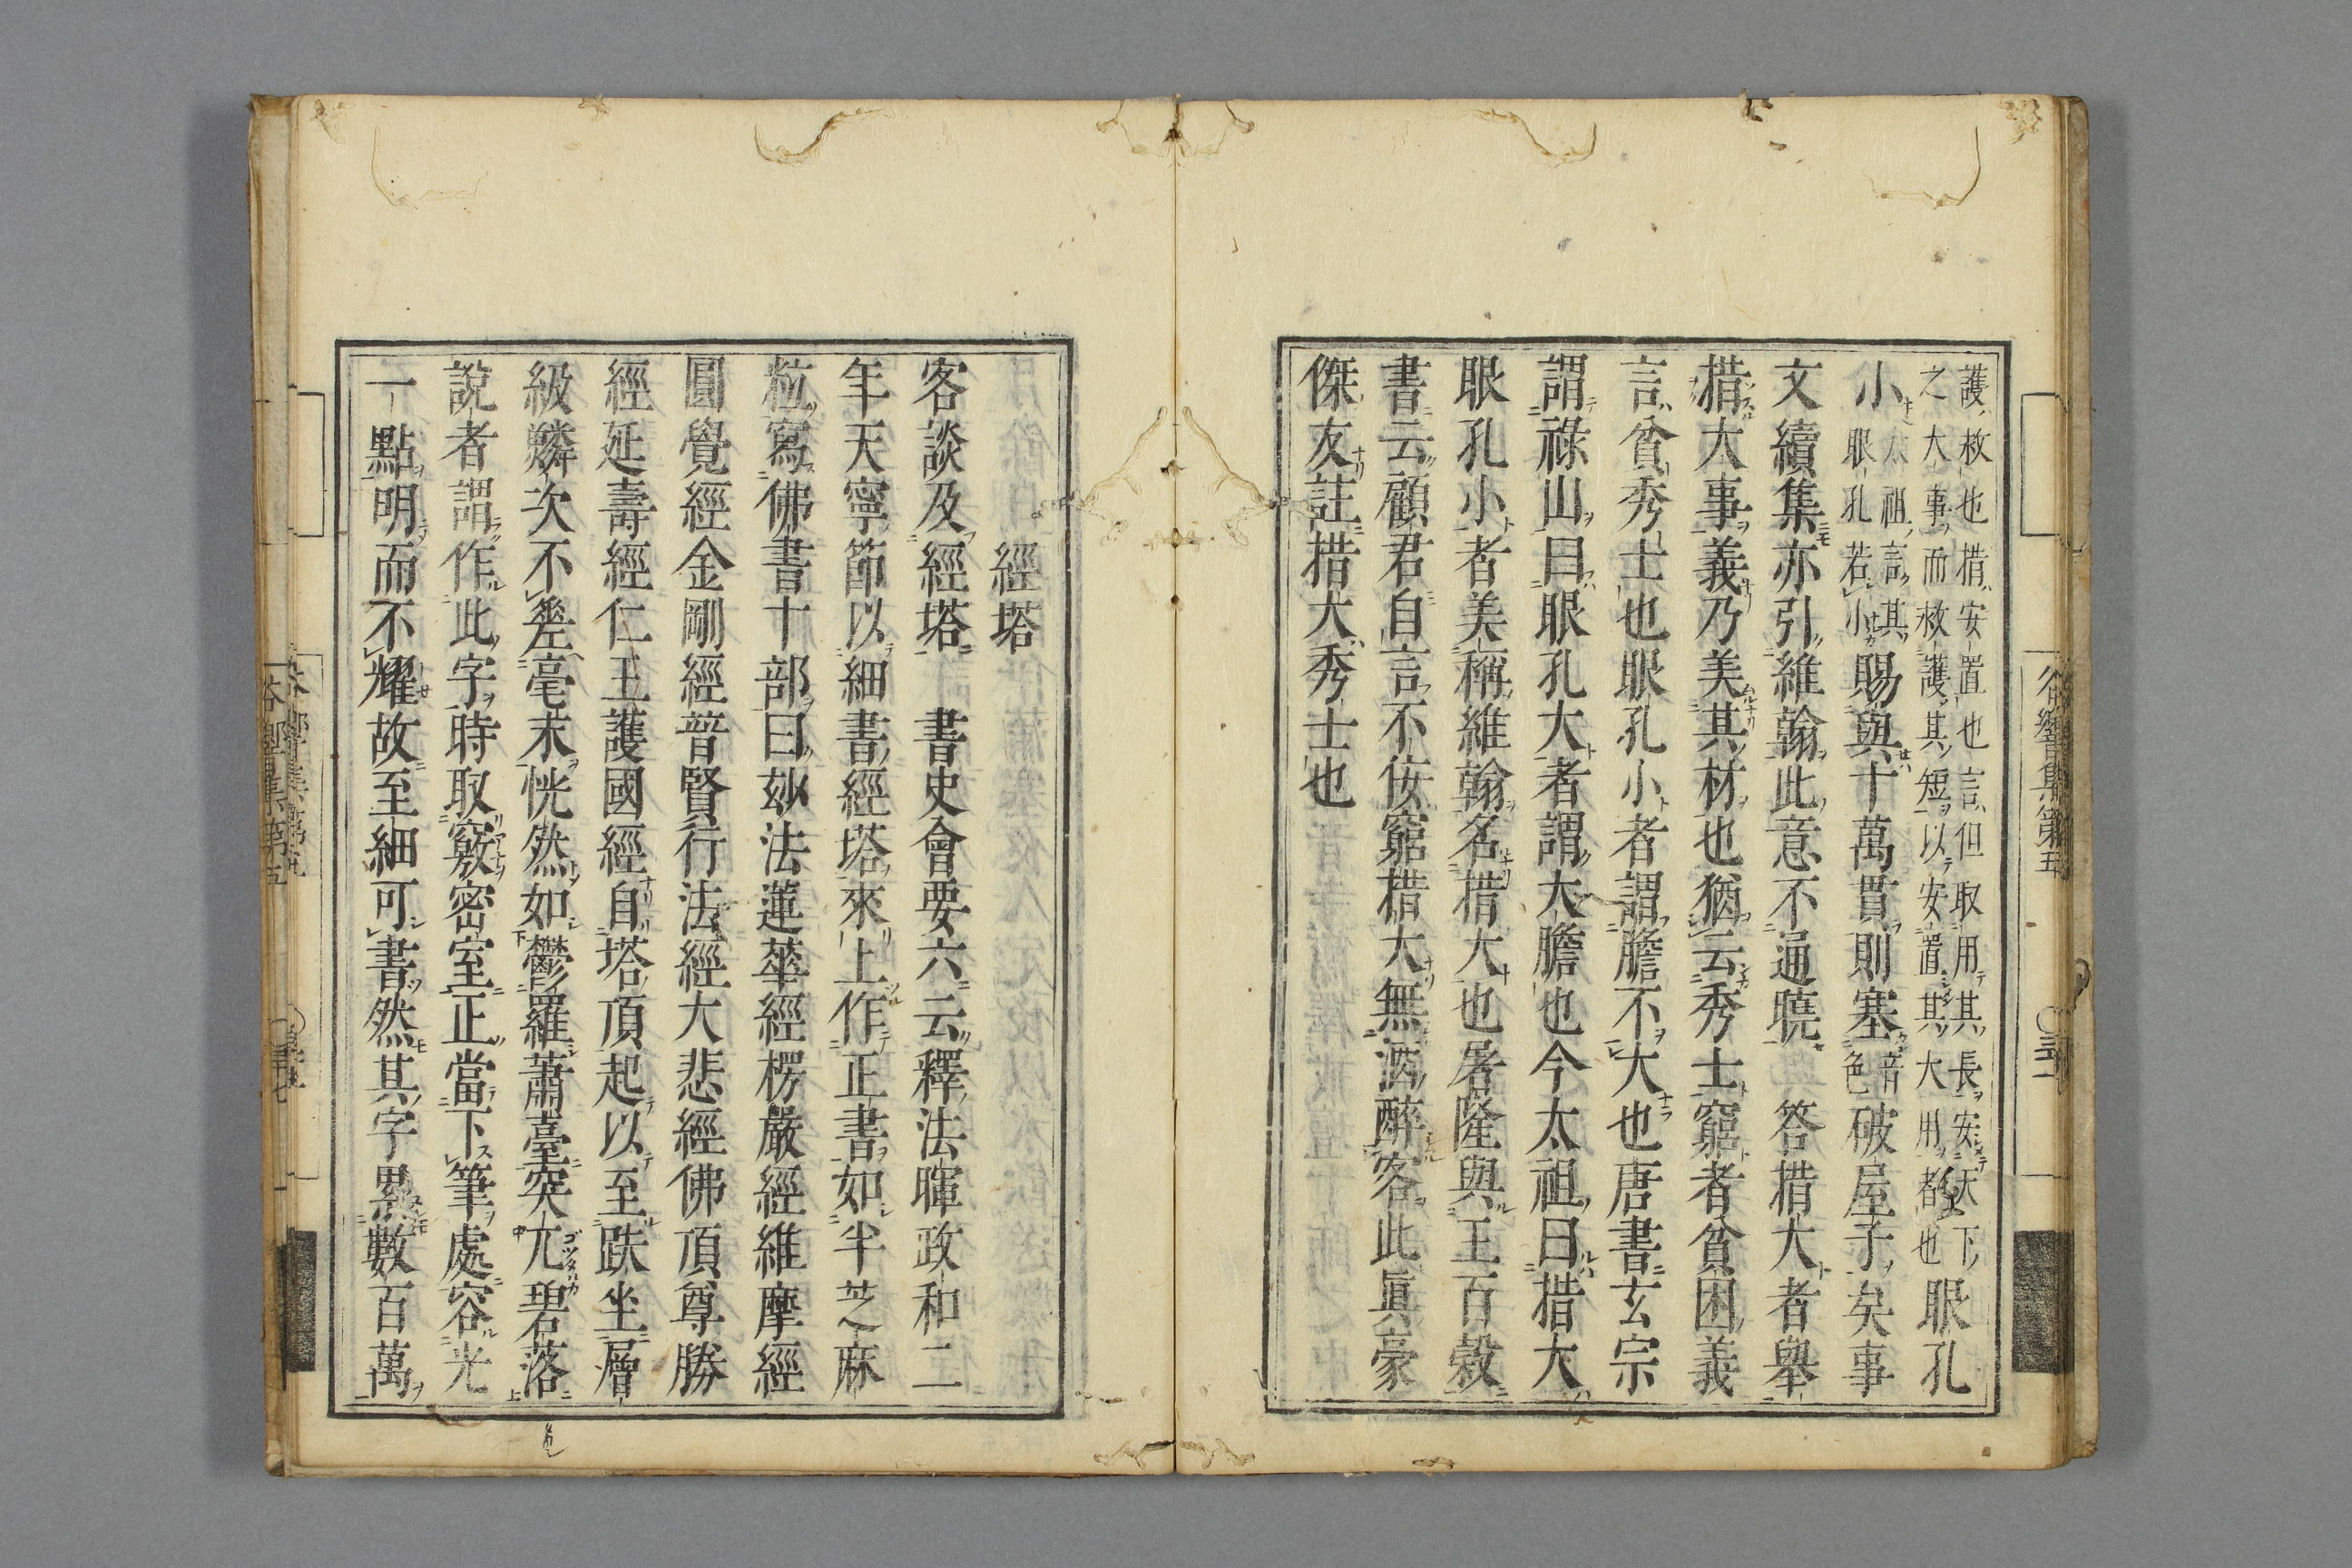 護救也措安置也言但取用其長安天下
之大事而救護其短以安置其大用者也
眼孔
小
太祖言其
眼孔若小
賜與十萬貫則塞
音
色
破屋子矣事
文續集亦引維翰此意不通曉 答措大者舉
措大事義乃美其材也猶云秀士窮者貧困義
言貧秀士也眼孔小者謂膽不大也唐書玄宗
謂祿山曰眼孔大者謂大膽也今太祖曰措大
眼孔小者美稱維翰名措大也畧隆與王百穀
書云顧君自言不佞窮措大無酒醉客此眞豪
傑友註措大秀士也
經塔
客談及經塔 書史會要六云釋法暉政和二
年天寧節以細書經塔來上作正書如半芝麻
粒寫佛書十部曰玅法蓮華經楞嚴經維摩經
圓覺經金剛經普賢行法經大悲經佛頂尊勝
經延壽經仁王護國經自塔頂起以至趺坐層
級鱗次不差毫末恍然如鬱羅蕭臺突兀碧落
說者謂作此字時取竅密室正當下筆處容光
一點明而不耀故至細可書然其字累數百萬
谷響集第五